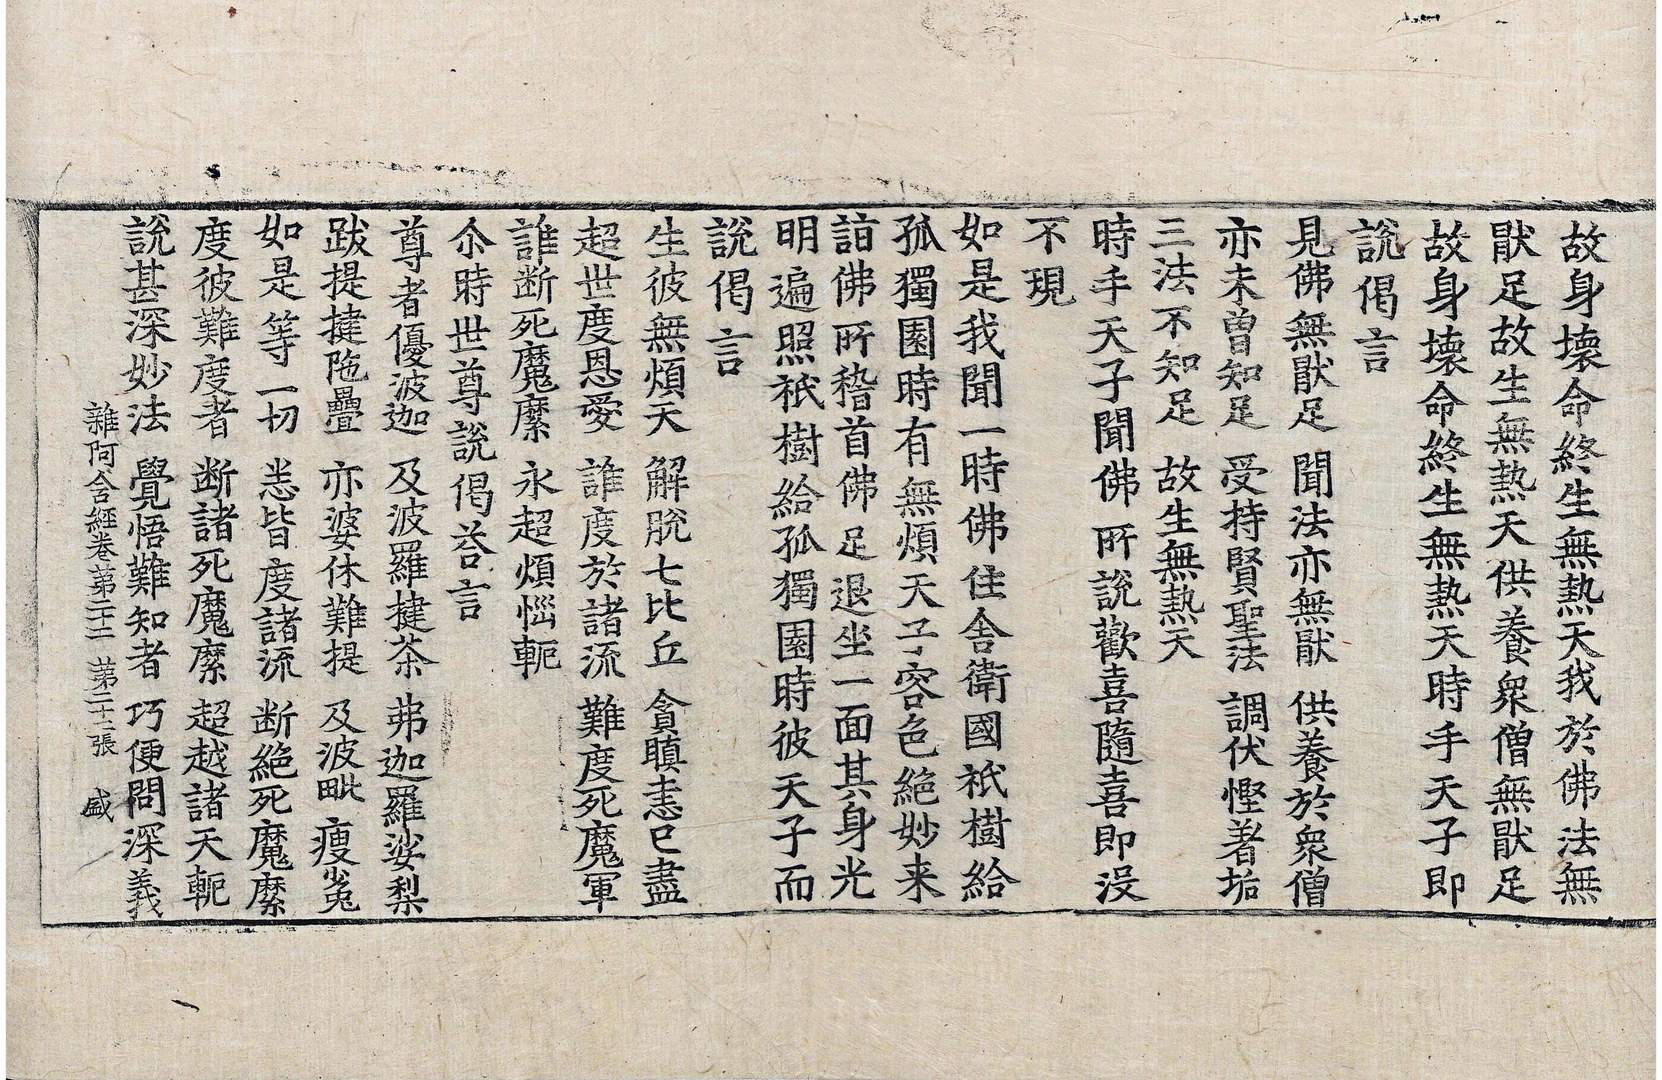 故身壞命終生無熱天我於佛法無
猒足故生無熱天供養衆僧無猒足
故身壞命終生無熱天時手天子即
說偈言
見佛無猒足 聞法亦無猒 供養於衆僧
亦未曾知足 受持賢聖法 調伏慳著垢
三法不知足 故生無熱天
時手天子聞佛所說歡喜隨喜即沒
不現
如是我聞一時佛住舍衛國祇樹給
孤獨園時有無煩天子容色絶妙来
詣佛所稽首佛足退坐一面其身光
明遍照祇樹給孤獨園時彼天子而
說偈言
生彼無煩天 解脫七比丘 貪瞋恚已盡
超世度恩愛 誰度於諸流 難度死魔軍
誰断死魔縻 永超煩惱軛
尒時世尊說偈荅言
尊者優波迦 及波羅揵茶 弗迦羅娑梨
跋提揵陁疊 亦婆休難提 及波毗瘦㝹
如是等一切 悉皆度諸流 断絶死魔縻
度彼難度者 断諸死魔縻 超越諸天軛
說甚深妙法 覺悟難知者 巧便問深義
雜阿含經卷第二十二 第二十二張 盛